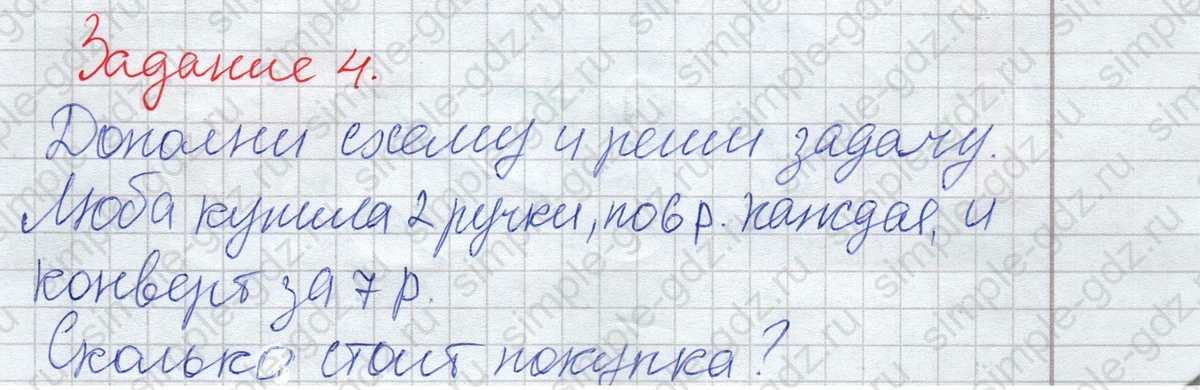 Задание 4.
Дополни схему и реши задачу.
Люба купила 2 ручки, по 6 р. каждая, и
конверт за 7 р.
Сколько стоит покупка?
simple-gdz.ru